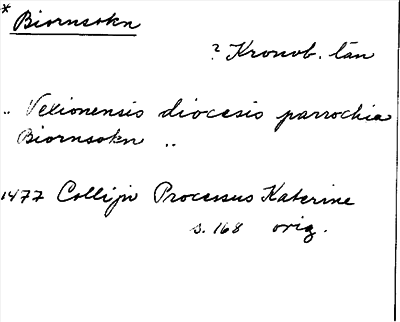 * Biornsokn
? Kronob. län
.. Vexionensis diocesis parrochia
Biornsokn ..
1477 Collijn Processus Katerine
s. 168 orig.